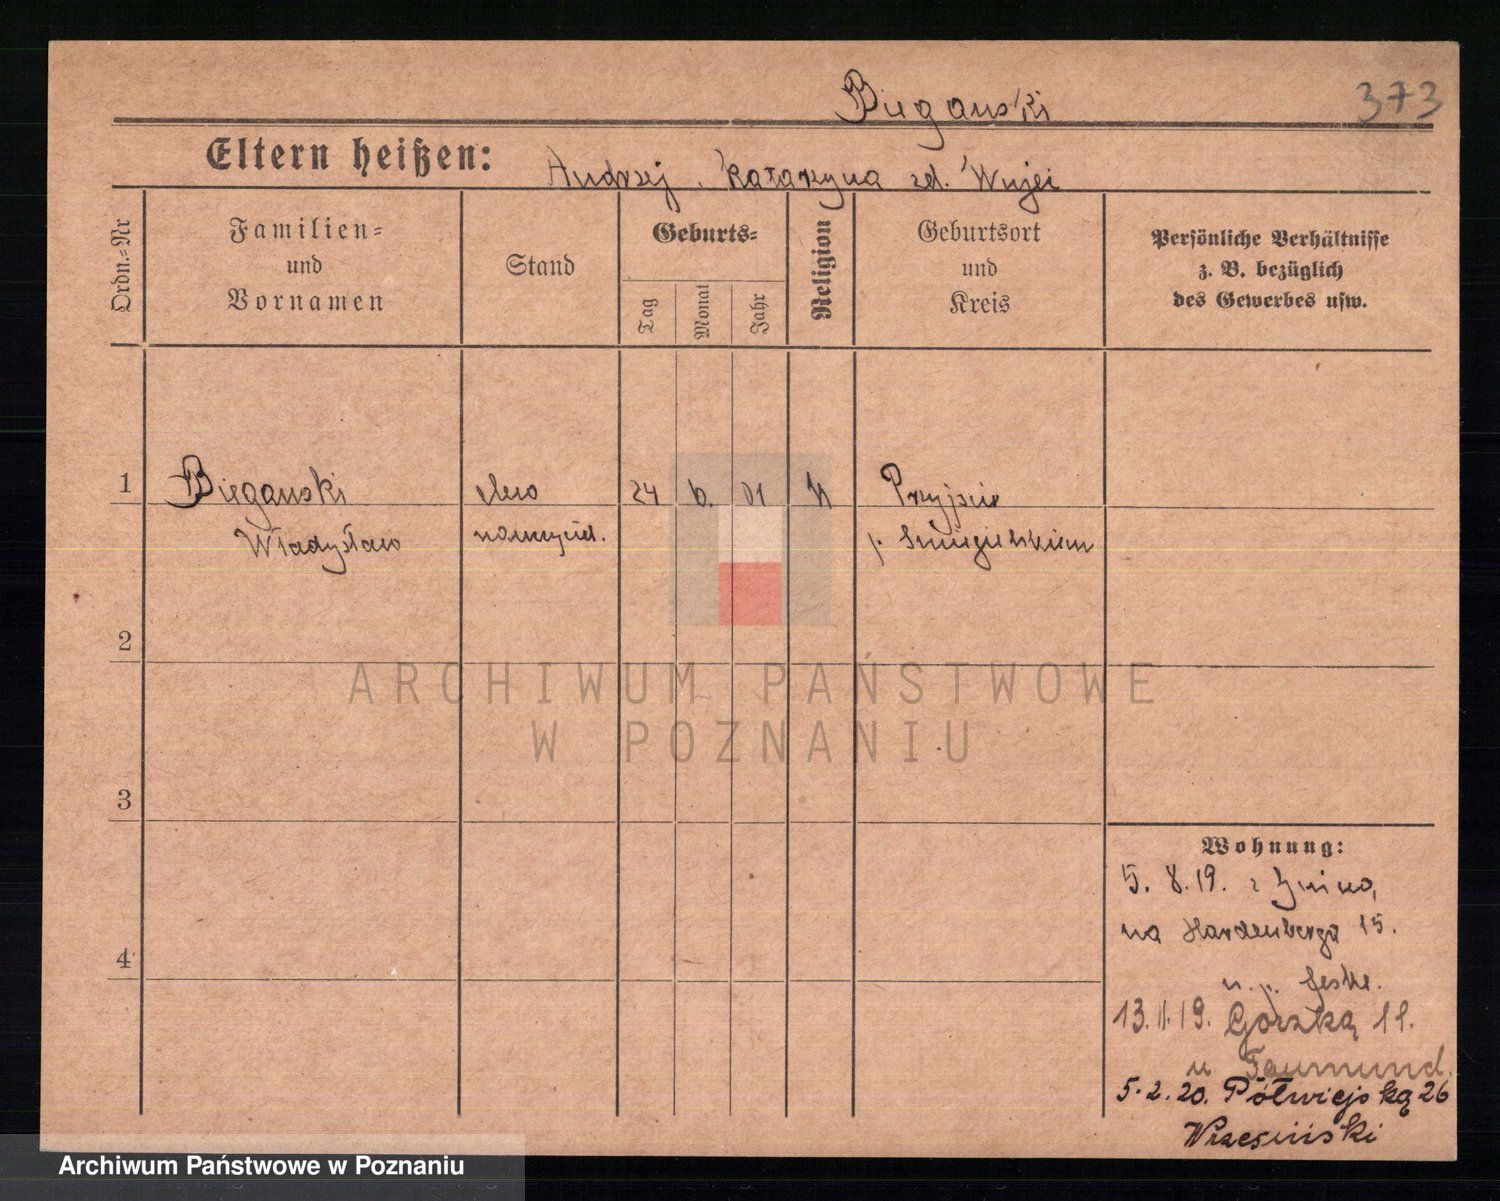 Bieganski
373
Eltern heißen: Andrzej, Katarzyna zd. Wujei
Ordn.=Nr
Familien=
und
Vornamen
Stand
Geburts=
Tag
Monat
Jahr
Religion
Geburtsort
und
Kreis
Persönliche Verhältnisse
z. B. bezüglich
des Gewerbes usw.
1 Bieganski 24 6. 01 K
Władysław
2
3
4
Wohnung:
5. 8.19. z Żnina,
na Hardenberga 15.
u. p. Jeske.
13.11.19. Górzką 11.
u
5.2.20. Półwiejską 26
Wrzesiński
ARCHIWUM PAŃSTWOWE
W POZNANIU
Archiwum Państwowe w Poznaniu